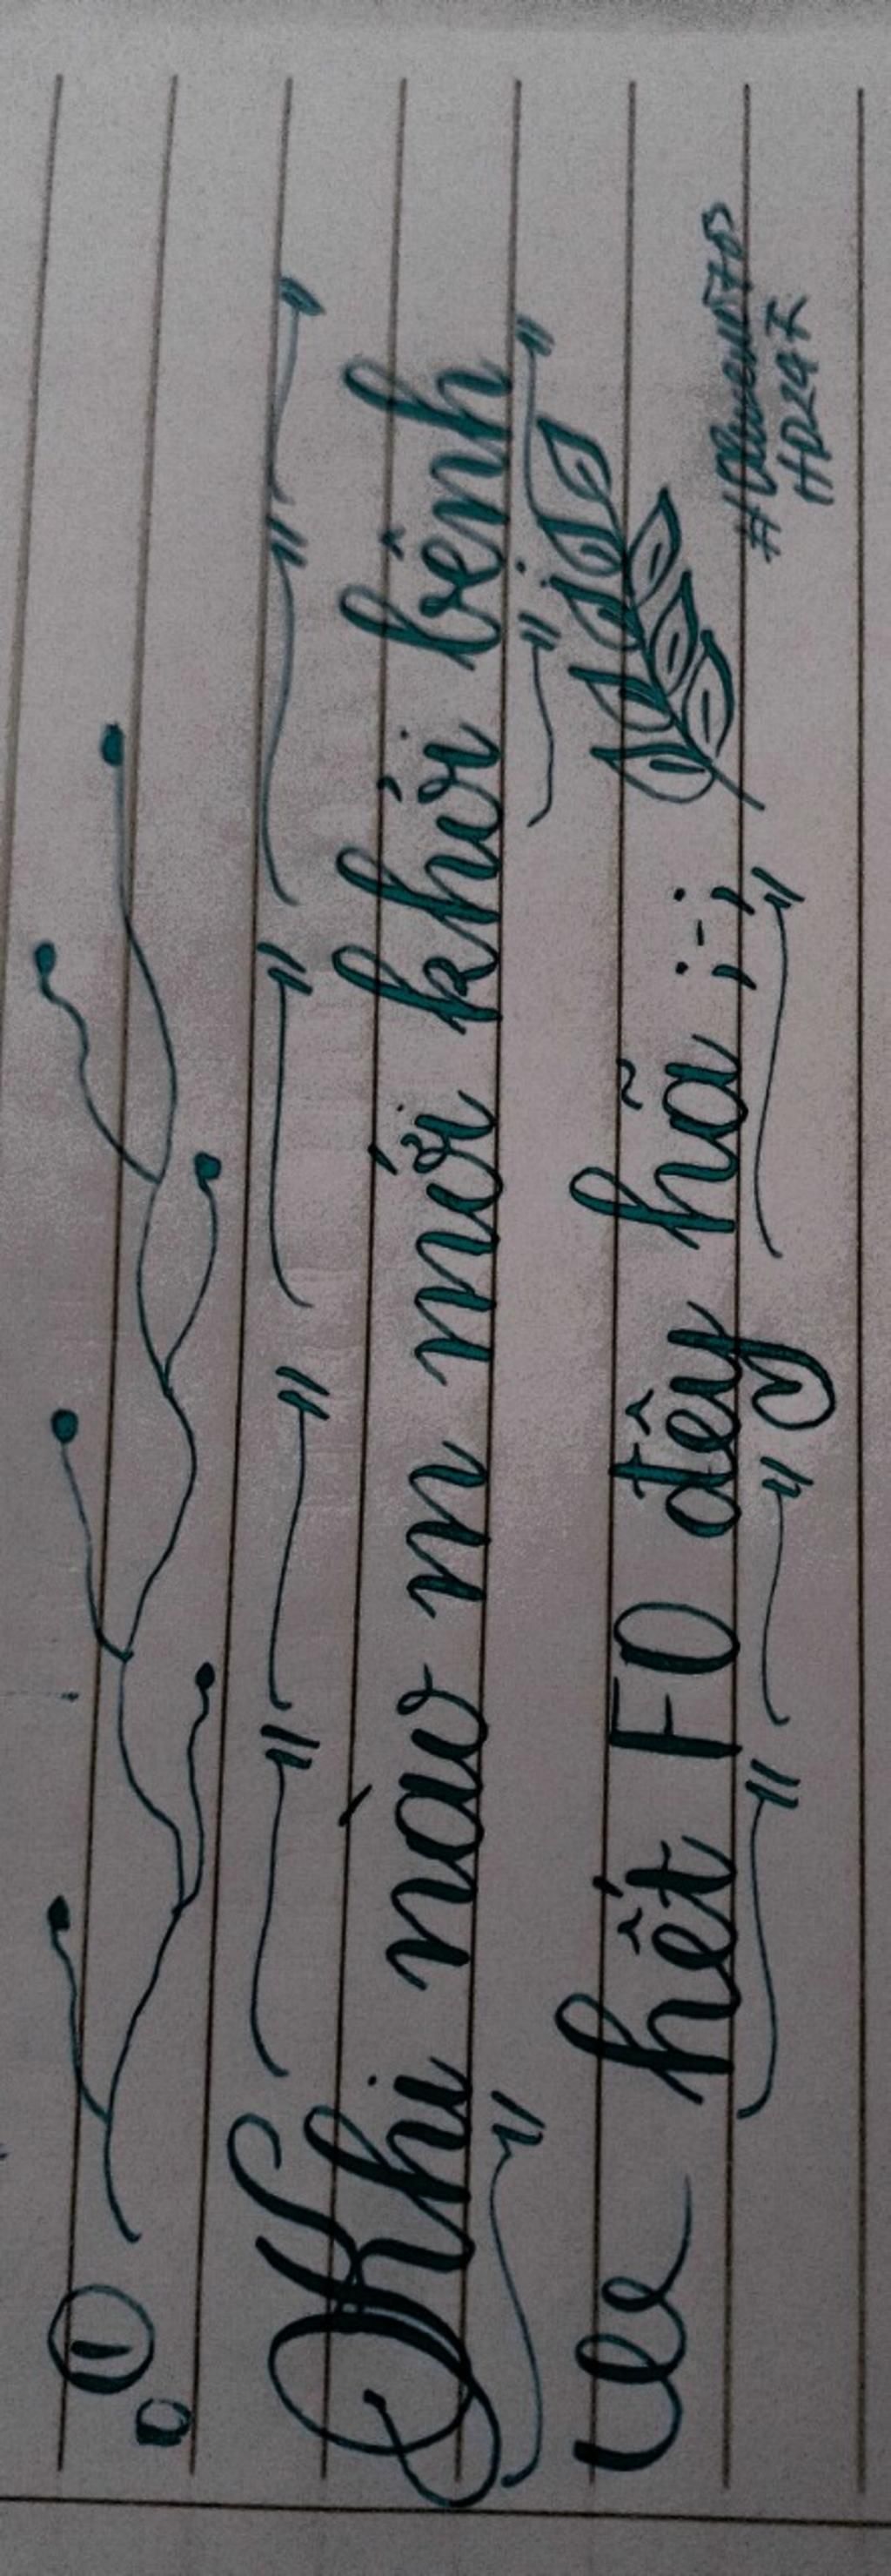 1
Khi nào m mới khỏi bệnh
hết F0 đêy hã ;-;
HD247